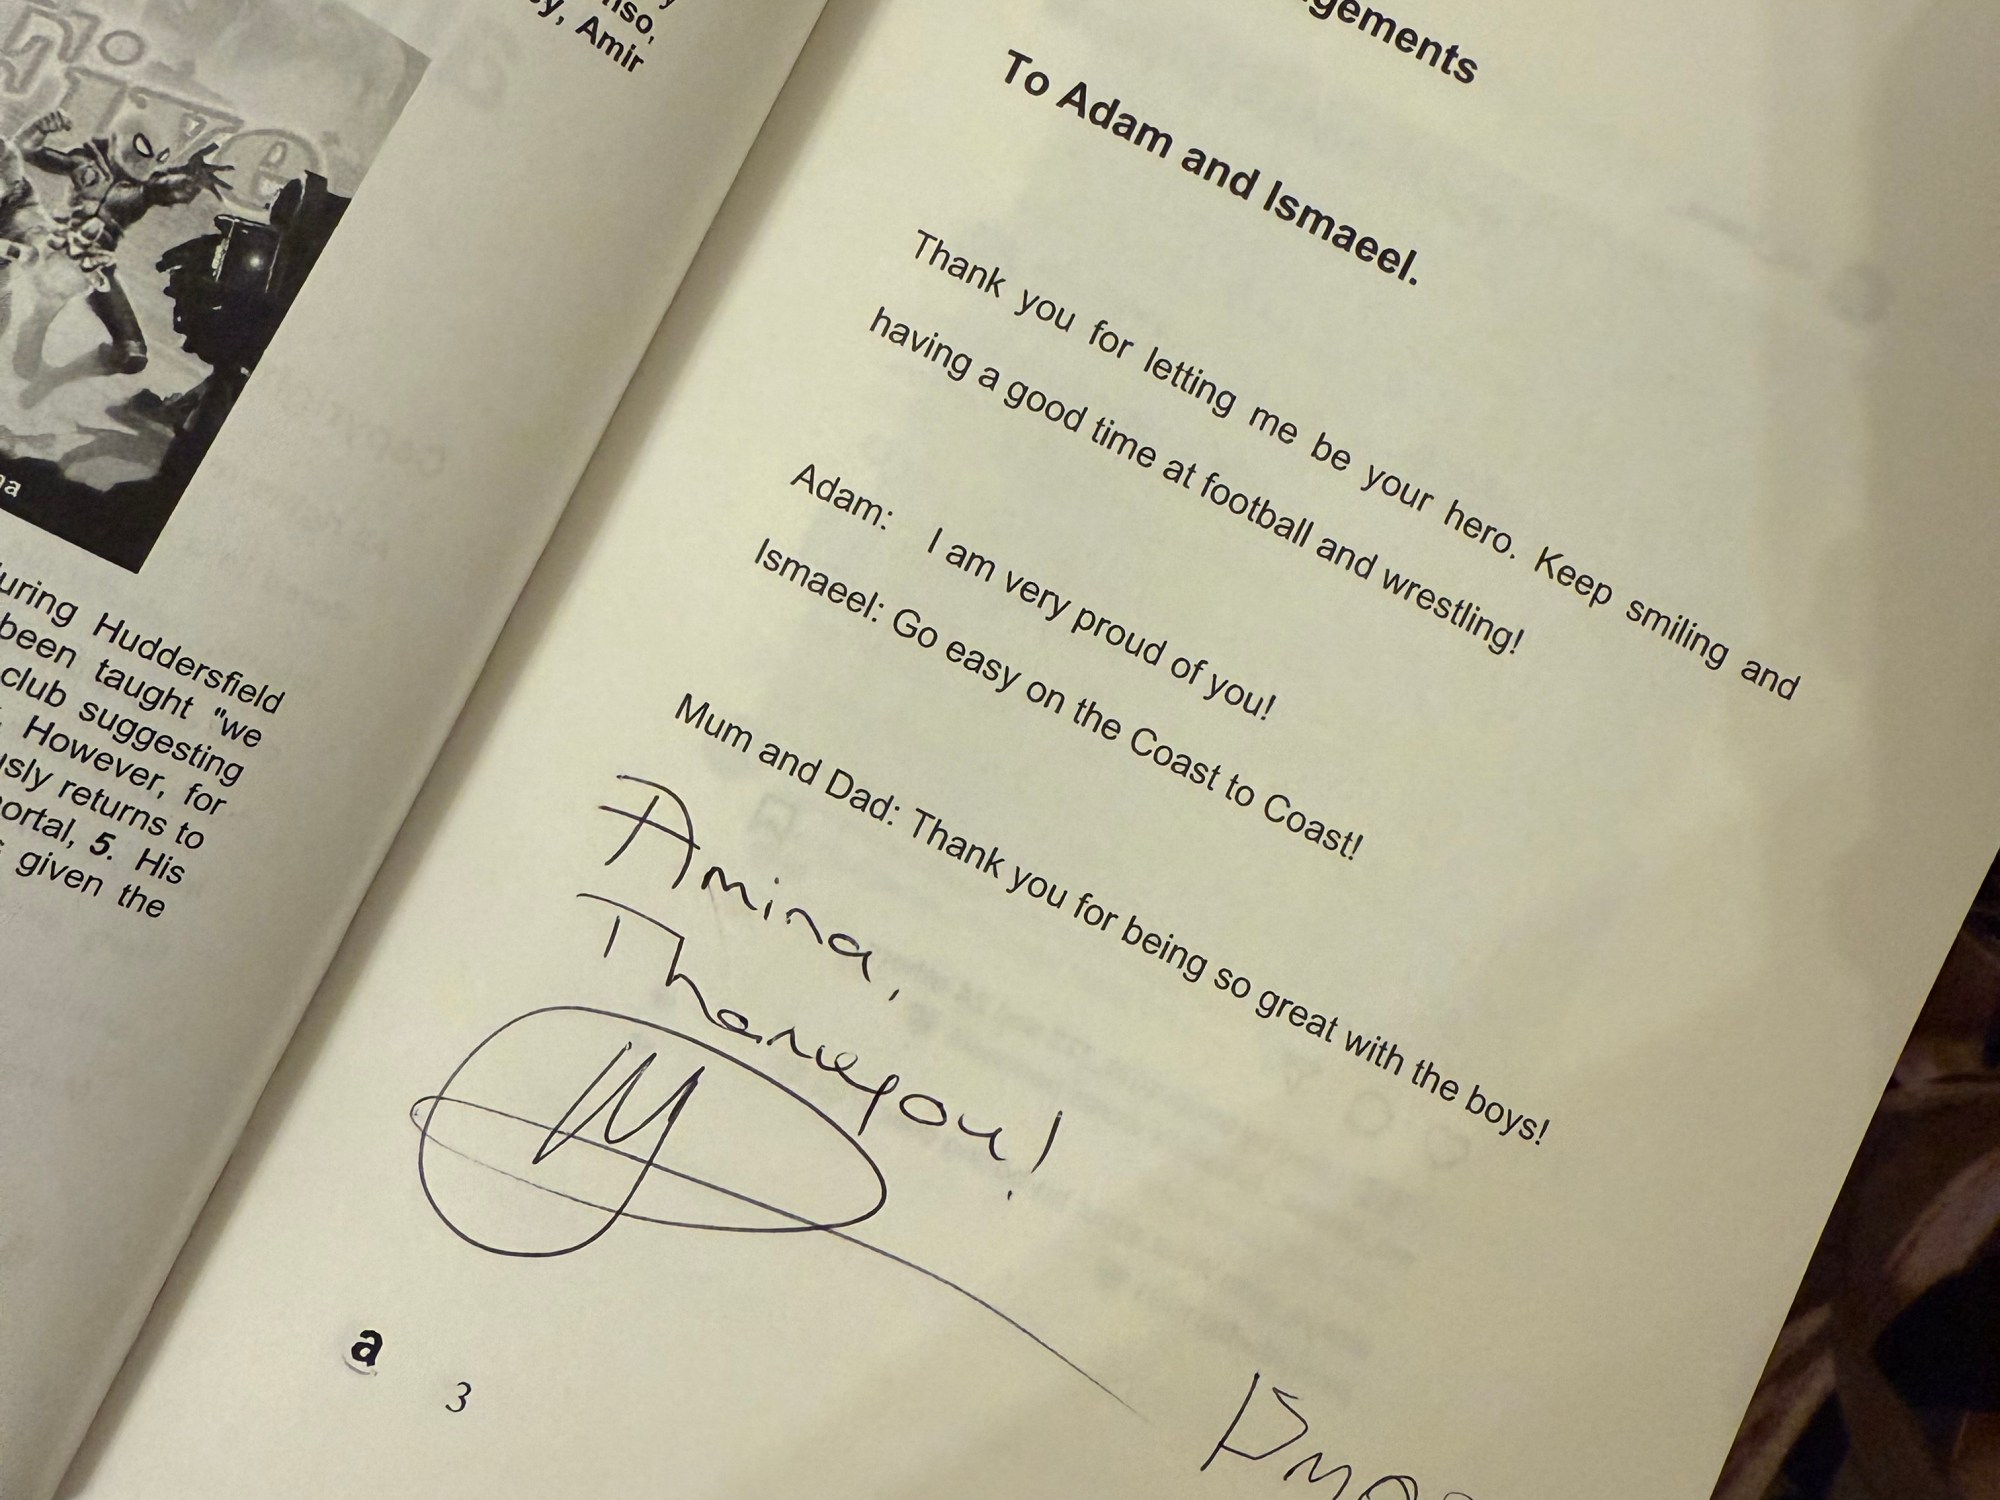 Amir
uring Huddersfield
been taught "we
club suggesting
However, for
returns to
5. His
given the
To Adam and Ismaeel.
Thank you for letting me be your hero. Keep smiling and
having a good time at football and wrestling!
Adam: I am very proud of you!
Ismaeel: Go easy on the Coast to Coast!
Mum and Dad: Thank you for being so great with the boys!
Amina,
Thank you!
a
3